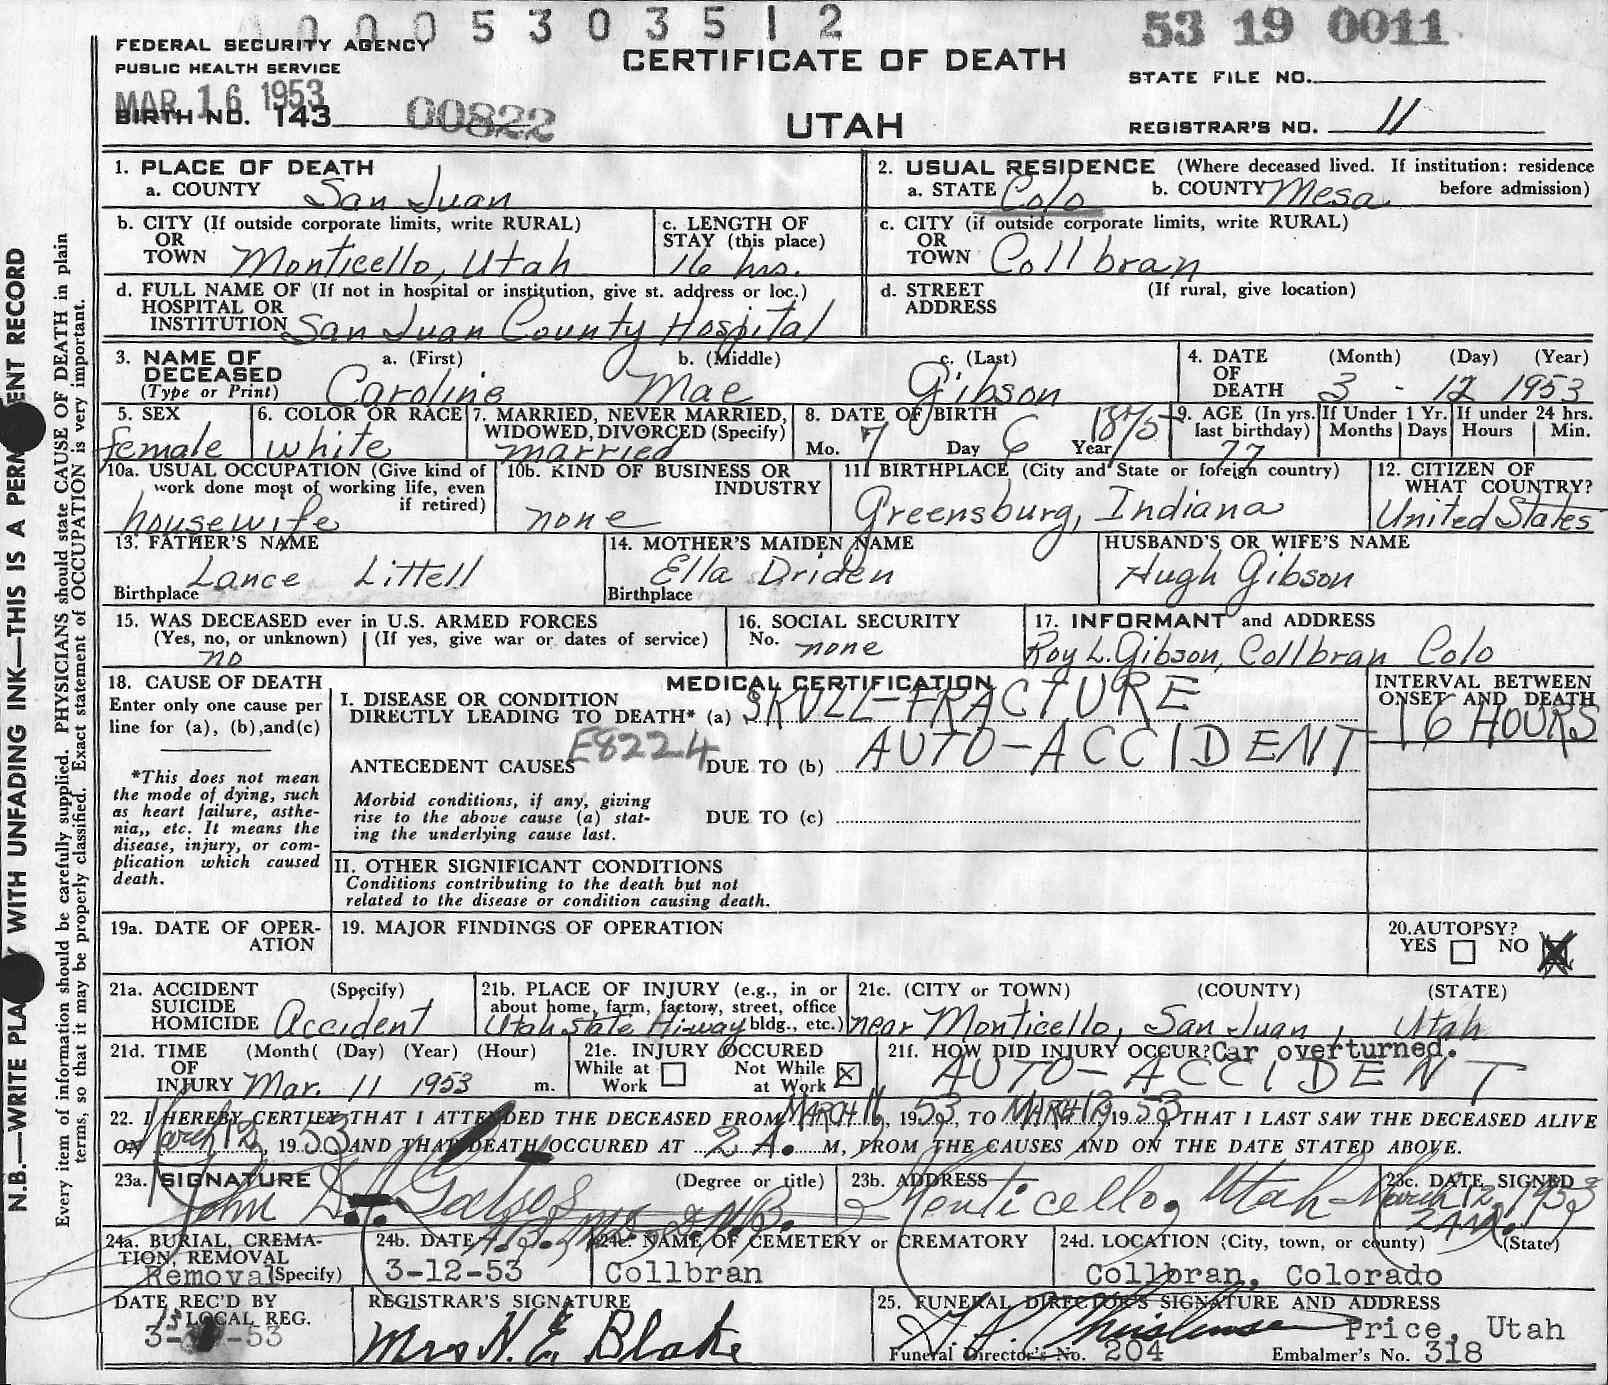 00005303512
53 19 0011
FEDERAL SECURITY AGENCY
PUBLIC HEALTH SERVICE
CERTIFICATE OF DEATH
STATE FILE NO.
MAR 16 1953
BIRTH NO. 143 00822
UTAH
REGISTRAR'S NO. 11
1. PLACE OF DEATH
a. COUNTY San Juan
2. USUAL RESIDENCE (Where deceased lived. If institution: residence before admission)
a. STATE Colo b. COUNTY Mesa
b. CITY (If outside corporate limits, write RURAL)
OR
TOWN Monticello, Utah
c. LENGTH OF
STAY (this place)
16 hrs.
c. CITY (if outside corporate limits, write RURAL)
OR
TOWN Collbran
d. FULL NAME OF (If not in hospital or institution, give st. address or loc.)
HOSPITAL OR
INSTITUTION San Juan County Hospital
d. STREET (If rural, give location)
ADDRESS
3. NAME OF DECEASED (Type or Print)
a. (First) b. (Middle) c. (Last)
Caroline Mae Gibson
4. DATE OF DEATH (Month) (Day) (Year)
3 - 12 1953
5. SEX
female
6. COLOR OR RACE
white
7. MARRIED, NEVER MARRIED,
WIDOWED, DIVORCED (Specify)
married
8. DATE OF BIRTH
Mo. 7 Day 6 Year 1875
9. AGE (In yrs. last birthday)
77
If Under 1 Yr.
Months Days
If under 24 hrs.
Hours Min.
10a. USUAL OCCUPATION (Give kind of
work done most of working life, even
if retired)
housewife
10b. KIND OF BUSINESS OR
INDUSTRY
none
11. BIRTHPLACE (City and State or foreign country)
Greensburg, Indiana
12. CITIZEN OF
WHAT COUNTRY?
United States
13. FATHER'S NAME
Lance Littell
Birthplace
14. MOTHER'S MAIDEN NAME
Ella Driden
Birthplace
HUSBAND'S OR WIFE'S NAME
Hugh Gibson
15. WAS DECEASED ever in U.S. ARMED FORCES
(Yes, no, or unknown) (If yes, give war or dates of service)
no
16. SOCIAL SECURITY
No. none
17. INFORMANT and ADDRESS
Roy L. Gibson, Collbran Colo
18. CAUSE OF DEATH
Enter only one cause per
line for (a), (b), and (c)
*This does not mean
the mode of dying, such
as heart failure, asthe-
nia,, etc. It means the
disease, injury, or com-
plication which caused
death.
MEDICAL CERTIFICATION
I. DISEASE OR CONDITION
DIRECTLY LEADING TO DEATH* (a) SKULL-FRACTURE
E822.4
ANTECEDENT CAUSES DUE TO (b) AUTO-ACCIDENT
Morbid conditions, if any, giving
rise to the above cause (a) stat-
ing the underlying cause last.
DUE TO (c)
INTERVAL BETWEEN
ONSET AND DEATH
16 HOURS
II. OTHER SIGNIFICANT CONDITIONS
Conditions contributing to the death but not
related to the disease or condition causing death.
19a. DATE OF OPER-
ATION
19. MAJOR FINDINGS OF OPERATION
20. AUTOPSY?
YES NO
21a. ACCIDENT (Specify)
SUICIDE
HOMICIDE Accident
21b. PLACE OF INJURY (e.g., in or
about home, farm, factory, street, office
bldg., etc.)
Utah State Hi-way
21c. (CITY or TOWN) (COUNTY) (STATE)
near Monticello, San Juan, Utah
21d. TIME (Month( (Day) (Year) (Hour)
OF
INJURY Mar. 11 1953 m.
21e. INJURY OCCURED
While at Work Not While at Work
21f. HOW DID INJURY OCCUR? Car overturned.
AUTO-ACCIDENT
22. I HEREBY CERTIFY THAT I ATTENDED THE DECEASED FROM MARCH 11, 1953, TO MARCH 12, 1953, THAT I LAST SAW THE DECEASED ALIVE
ON March 12, 1953 AND THAT DEATH OCCURED AT 2 A. M, FROM THE CAUSES AND ON THE DATE STATED ABOVE.
23a. SIGNATURE (Degree or title)
John
23b. ADDRESS
Monticello, Utah
23c. DATE SIGNED
March 12, 1953
24a. BURIAL, CREMA-
TION, REMOVAL
(Specify)
Removal
24b. DATE
3-12-53
24c. NAME OF CEMETERY or CREMATORY
Collbran
24d. LOCATION (City, town, or county) (State)
Collbran, Colorado
DATE REC'D BY
LOCAL REG.
3-13-53
REGISTRAR'S SIGNATURE
Mrs H. E. Blake
25. FUNERAL DIRECTOR'S SIGNATURE AND ADDRESS
Christensen Price, Utah
Funeral Director's No. 204 Embalmer's No. 318
N.B.—WRITE PLA Y WITH UNFADING INK—THIS IS A PERM ENT RECORD
Every item of information should be carefully supplied. PHYSICIANS should state CAUSE OF DEATH in plain
terms, so that it may be properly classified. Exact statement of OCCUPATION is very important.